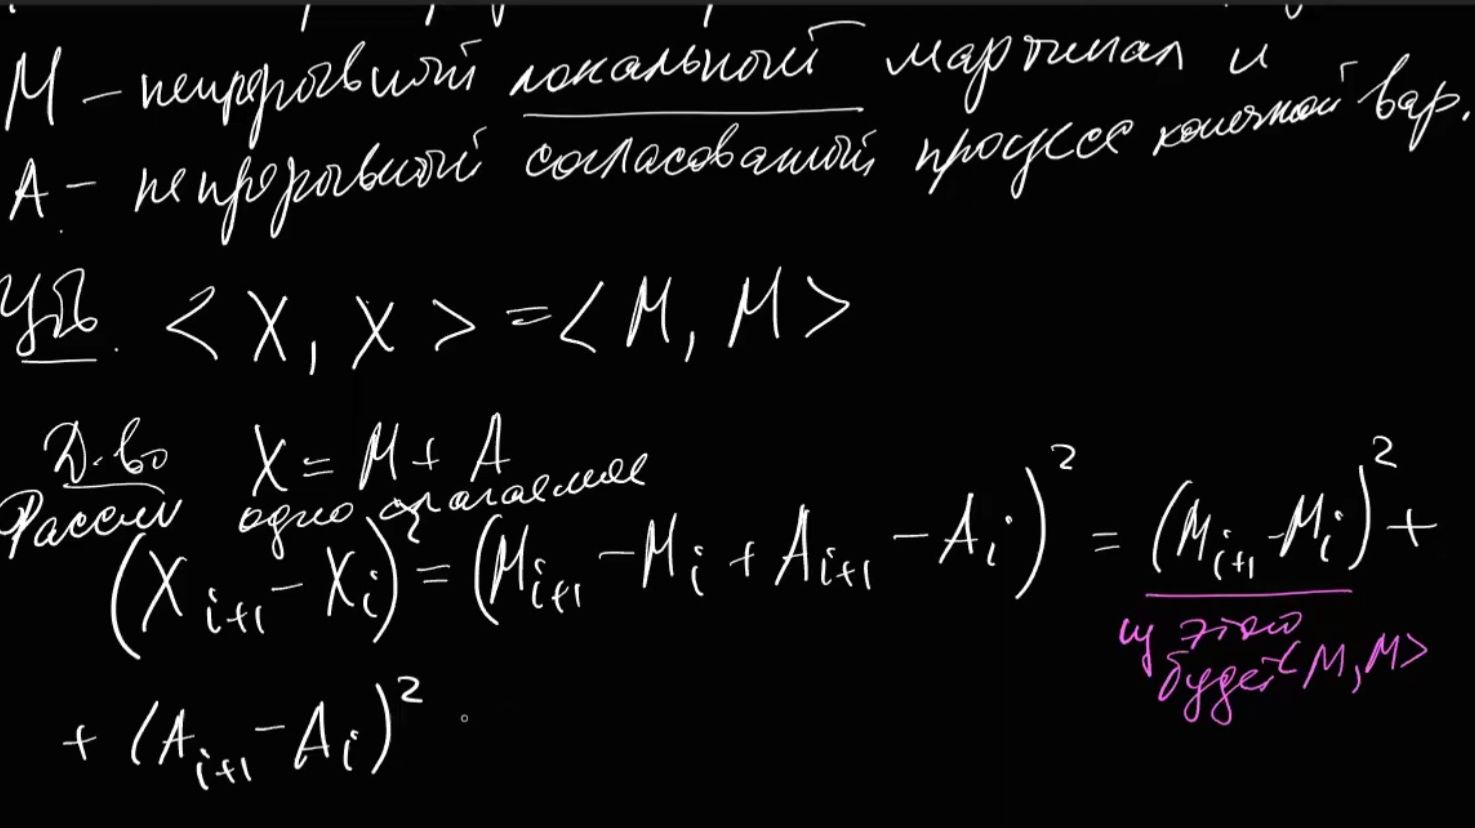 M – непрерывный локальный мартингал и
A – непрерывный согласованный процесс конечной вар.
Утв. < X, X > = < M, M >
Д-во X = M + A
Рассм одно слагаемое
(X_{i+1} - X_i)^2 = (M_{i+1} - M_i + A_{i+1} - A_i)^2 = (M_{i+1} - M_i)^2 +
из этого
будет <M, M>
+ (A_{i+1} - A_i)^2